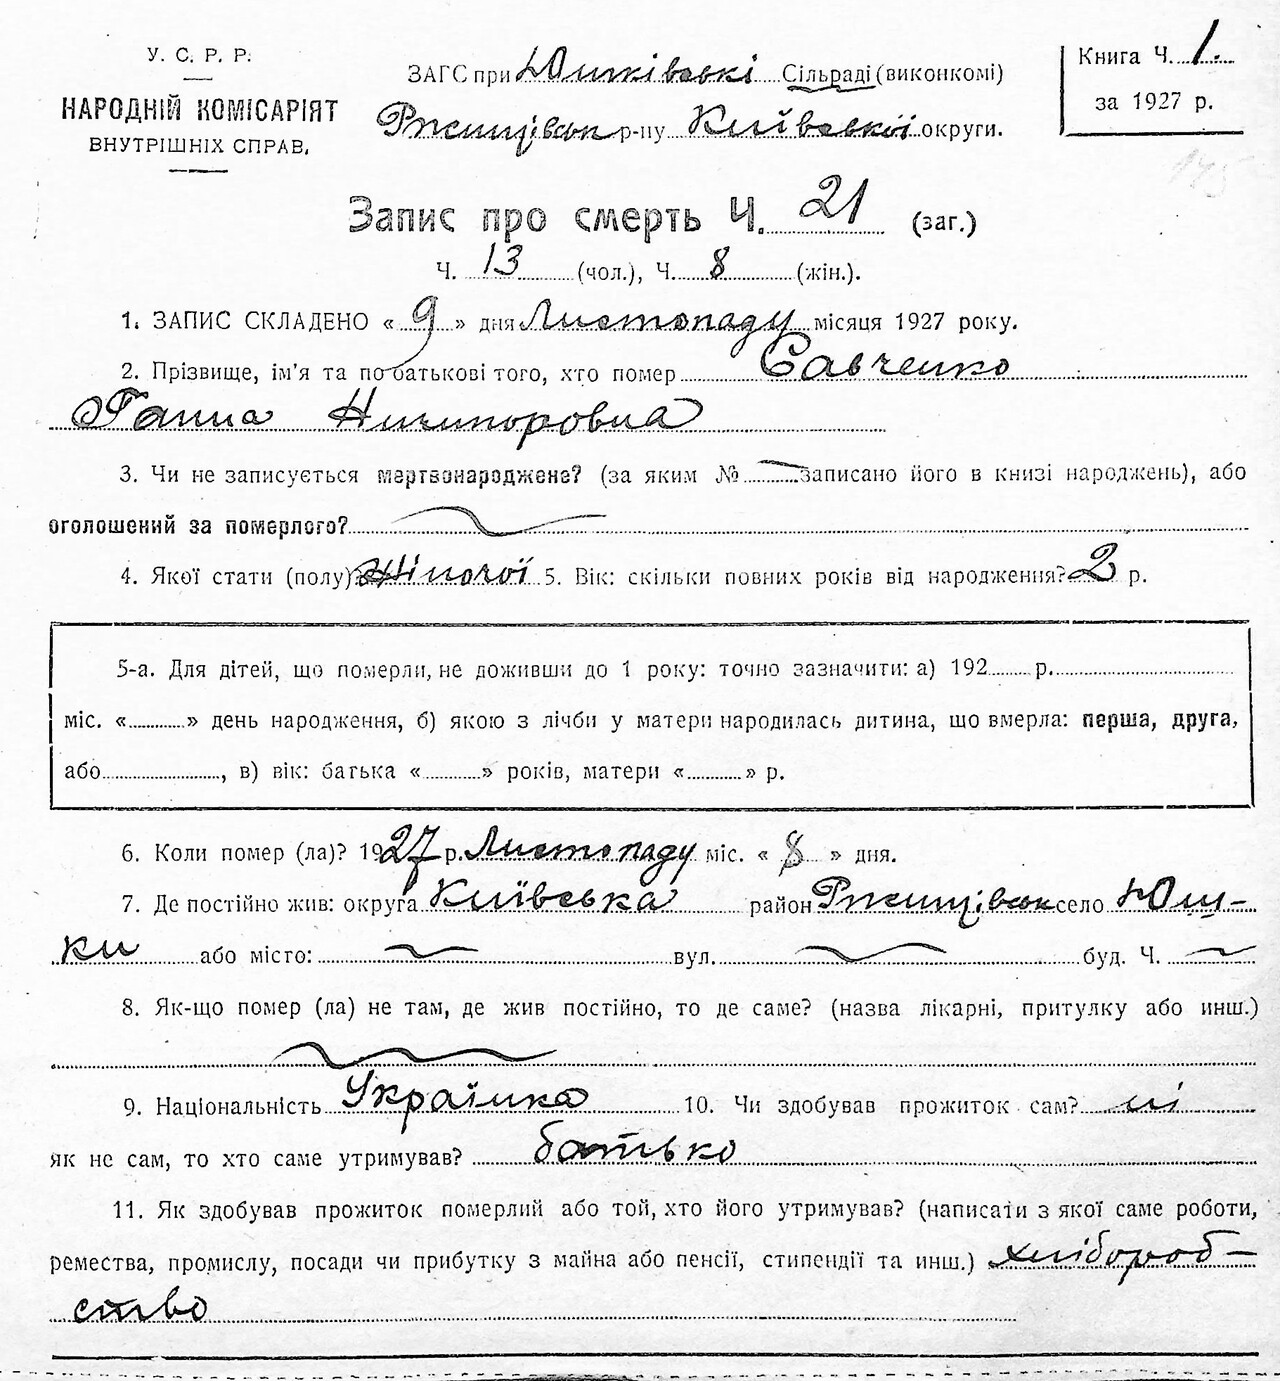 У. С. Р. Р.
НАРОДНІЙ КОМІСАРІЯТ
ВНУТРІШНІХ СПРАВ.
ЗАГС при Юшківські Сільраді (виконкомі)
Ржищівськ р-ну Київської округи.
Книга Ч. 1.
за 1927 р.
145
Запис про смерть Ч. 21 (заг.)
Ч. 13 (чол.), Ч. 8 (жін.).
1. ЗАПИС СКЛАДЕНО « 9 » дня Листопаду місяця 1927 року.
2. Прізвище, ім'я та по батькові того, хто помер Савченко
Ганна Ничипоровна
3. Чи не записується мертвонароджене? (за яким № записано його в книзі народжень), або
оголошений за померлого?
4. Якої стати (полу)? Жіночої 5. Вік: скільки повних років від народження? 2 р.
5-а. Для дітей, що померли, не доживши до 1 року: точно зазначити: а) 192 р.
міс. « » день народження, б) якою з лічби у матери народилась дитина, що вмерла: перша, друга,
або , в) вік: батька « » років, матери « » р.
6. Коли помер (ла)? 1927 р. Листопаду міс. « 8 » дня.
7. Де постійно жив: округа Київська район Ржищівськ село Юш-
ки або місто: вул. буд. Ч.
8. Як-що помер (ла) не там, де жив постійно, то де саме? (назва лікарні, притулку або инш.)
9. Національність Українка 10. Чи здобував прожиток сам? ні
як не сам, то хто саме утримував? батько
11. Як здобував прожиток померлий або той, хто його утримував? (написати з якої саме роботи,
ремества, промислу, посади чи прибутку з майна або пенсії, стипендії та инш.) хліброб-
ство